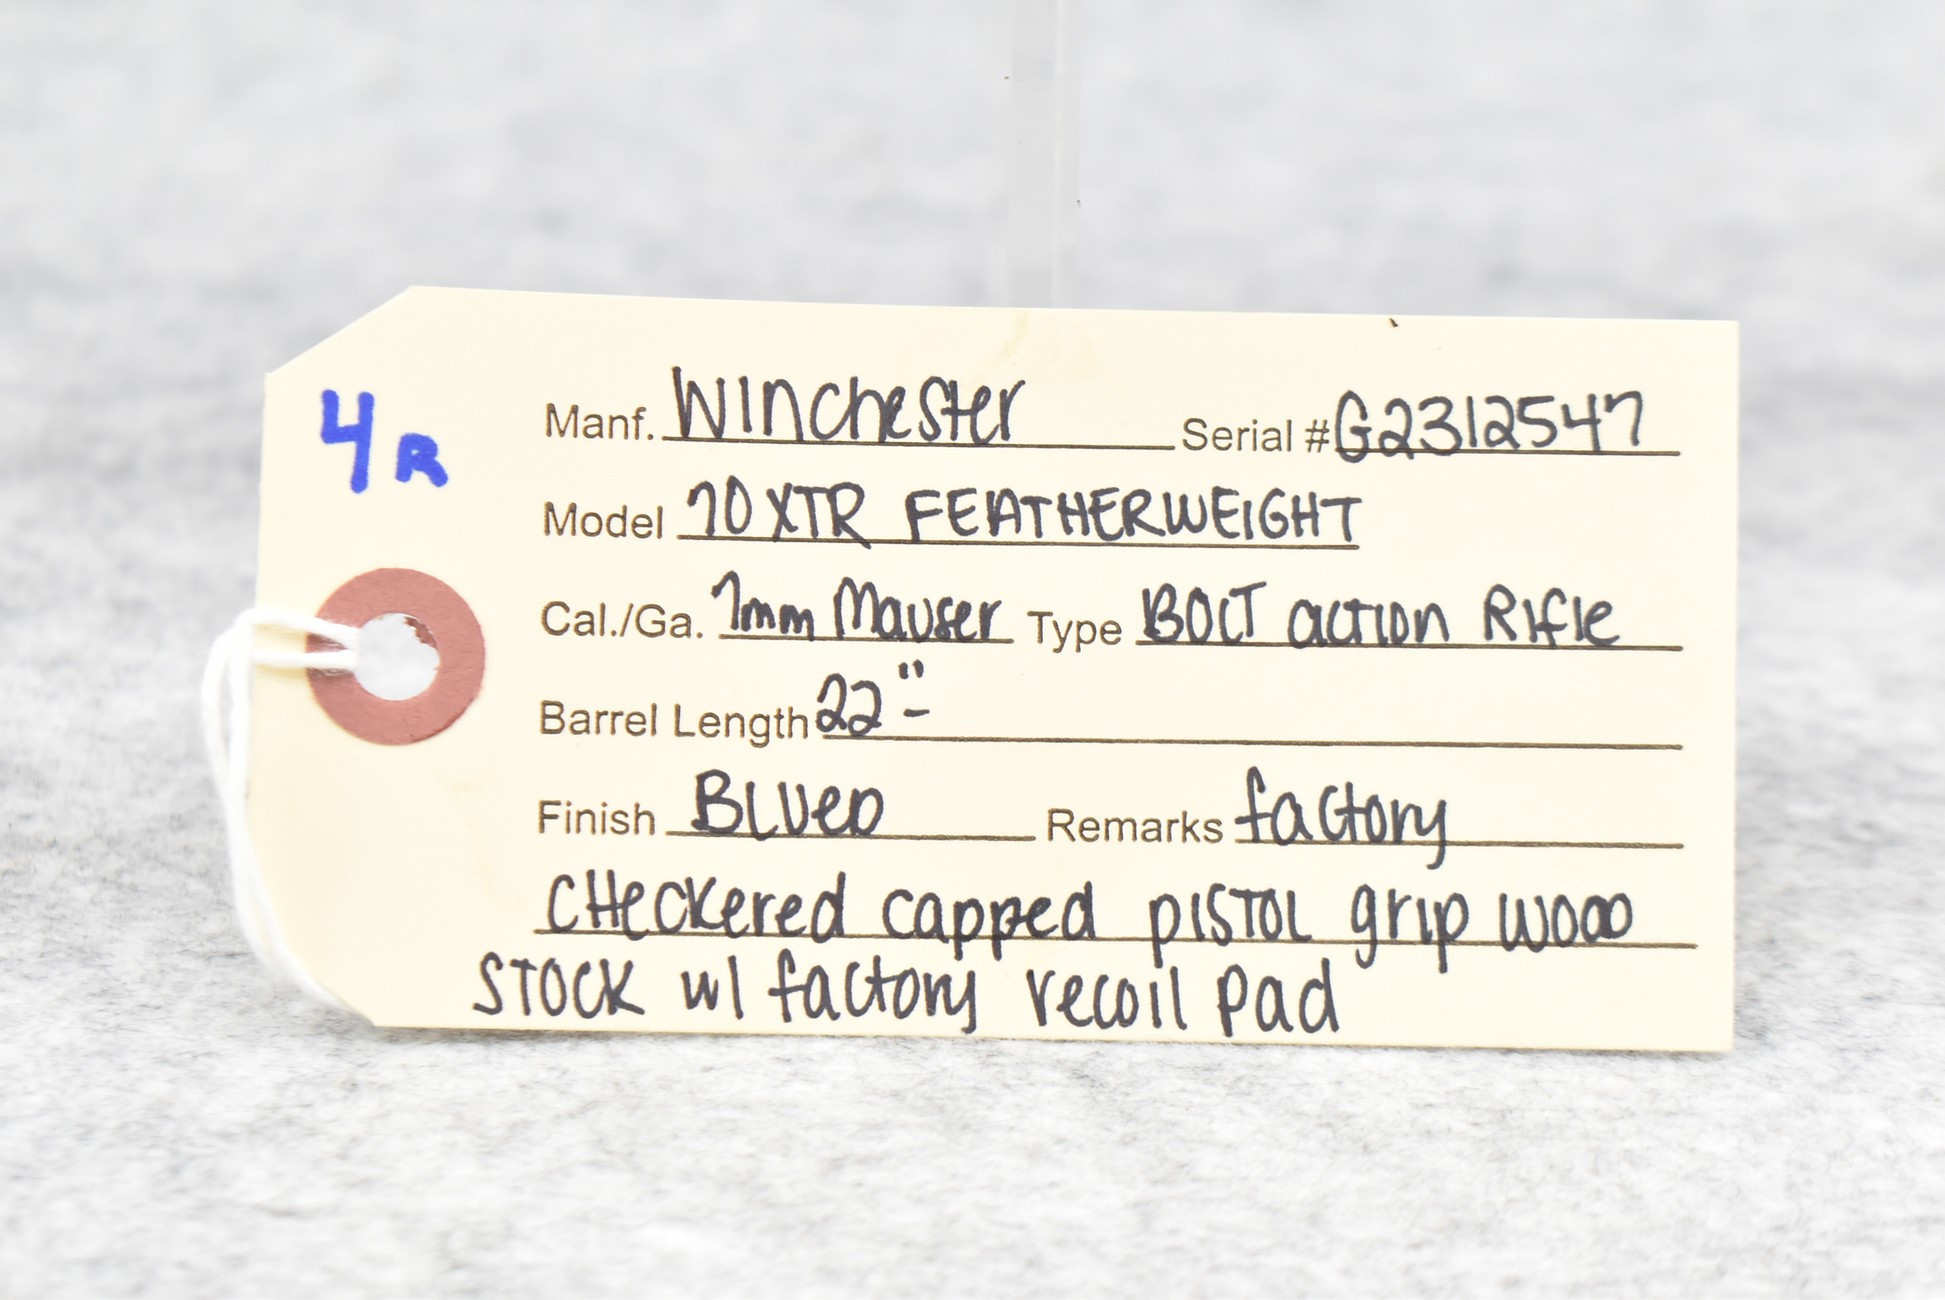 4R
Manf. Winchester Serial # G2312547
Model 70 XTR FEATHERWEIGHT
Cal./Ga. 7mm Mauser Type BOLT action Rifle
Barrel Length 22"-
Finish BLUED Remarks factory
CHeckered capped PISTOL grip wood
STOCK w/ factory recoil pad